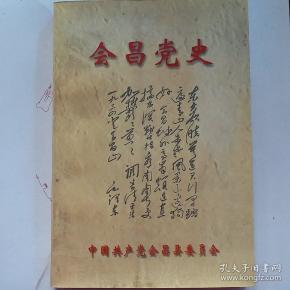 会昌党史
东方欲晓莫道君行早踏
遍青山人未老风景这边独
好会昌城外高峰颠连直
接东溟战士指看南粤更
加郁郁葱葱
毛泽东
中国共产党会昌县委员会
孔夫子旧书网